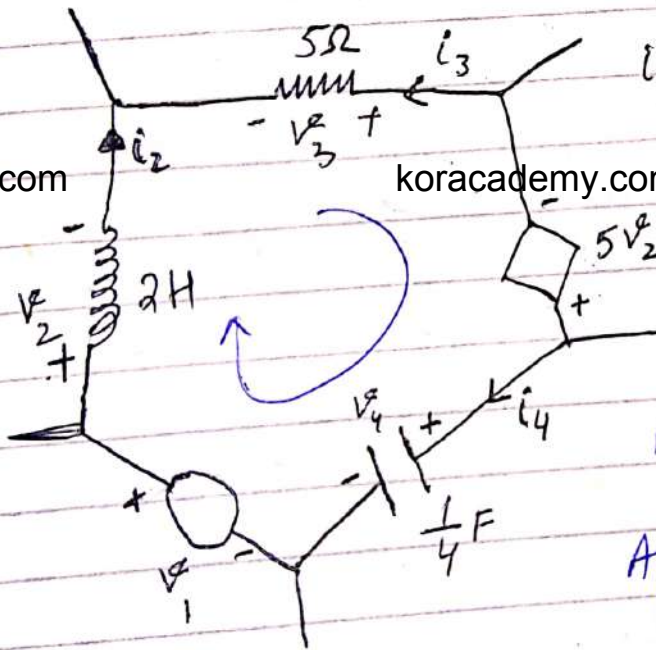 5Ω
i₃
i
- v₃ +
i₂
.com
koracademy.com
-
-
2H
5v₂
v₂
+
+
v₄
+
i₄
-
+
1/4 F
-
v₁
A